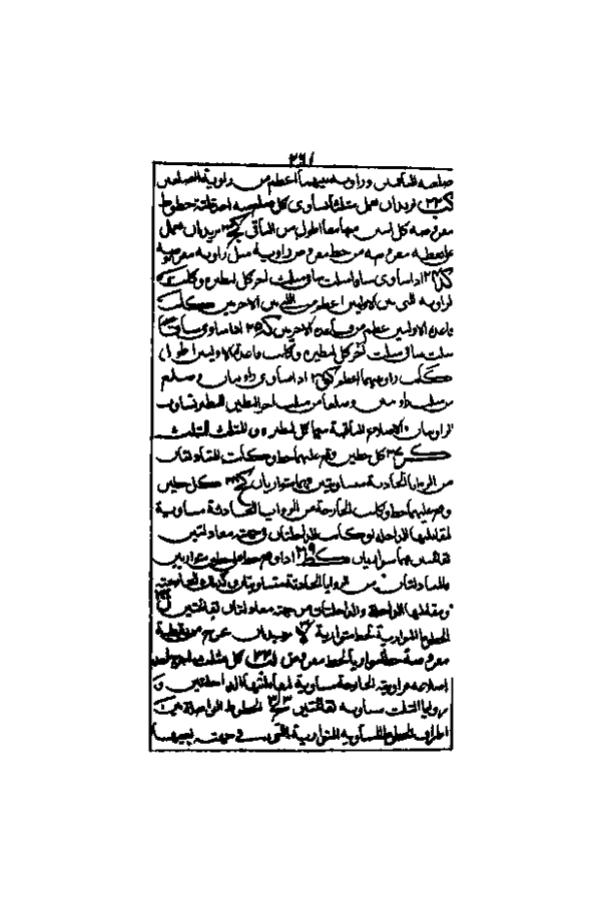 ٢٦١
وزاوية بينهما اعظم من زاوية الضلعين
كب ٢٢ نريد ان نعمل مثلثا تساوى كل ضلع منه احد ثلثة خطوط
مفروضه كل اثنين منها معا اطول من الباقى كج نريد ان نعمل
على نقطه مفروضه من خط مفروض زاوية مثل زاويه مفروضه
كد ٢٤ اذا ساوى ساقا مثلث ساقى مثلث اخر كل لنظيره وكانت
زاويه التى بين الاولين اعظم من التى بين الاخرين كانت
قاعدة الاولين اعظم من قاعدة الاخرين كه ٢٥ اذا ساوى ساقا
مثلث ساقى مثلث اخر كل لنظيره وكانت قاعدة الاولين اطول
كانت زاويتهما اعظم كو ٢٦ اذا تساوى زاويتان وضلع
من مثلث زاويتين وضلعا من مثلث اخر النظير تساوت
الزاويتان والاضلاع الباقية منهما كل لنظيره والمثلث المثلث
كز ٢٧ كل خطين وقع عليهما خط وكانت المتبادلتان
من الزوايا الحادثة متساويتين فهما متوازيان كح كل خطين
وقع عليهما خط وكانت الخارجة من الزوايا الحادثة مساوية
لمقابلتها الداخلة او كانت الداخلتان فى جهة معادلتين
لقائمتين فهما متوازيان كط ٢٩ اذا وقع خط على خطين متوازيين
فالمتبادلتان من الزوايا الحادثة متساويتان وكذلك الخارجة
ومقابلتها الداخلة والداخلتان من جهة معادلتان لقائمتين
الخطوط الموازية لخط متوازية لا نريد ان نخرج من نقطة
مفروضة خطا موازيا لخط مفروض لب ٣٢ كل مثلث اخرج احد
اضلاعه فزاويته الخارجة مساوية لمقابلتيها الداخلتين و
زوايا المثلث مساويه لقائمتين لج ٣٣ الخطوط الواصلة بين
اطراف الخطوط المتساويه المتوازية التى فى جهة بعينها